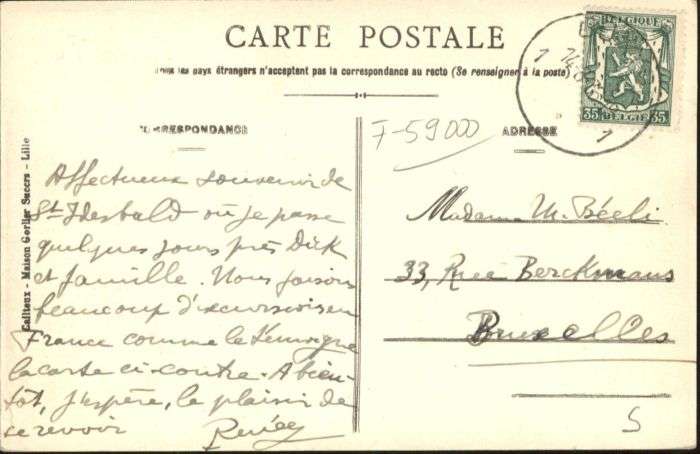 CARTE POSTALE
Tous les pays étrangers n'acceptent pas la correspondance au recto (Se renseigner à la poste)
CORRESPONDANCE
ADRESSE
F-59000
BELGIQUE
35 BELGIE 35
Editeux - Maison Gerlier Succrs - Lille
Affectueux souvenir de
St Idesbald où je passe
quelques jours près Dick
et famille. Nous faisons
beaucoup d'excursions en
France comme le témoigne
la carte ci-contre. A bien-
tôt, j'espère, le plaisir de
se revoir
Renée
Madame M. Béeli
33, Rue Berckmans
Bruxelles
S